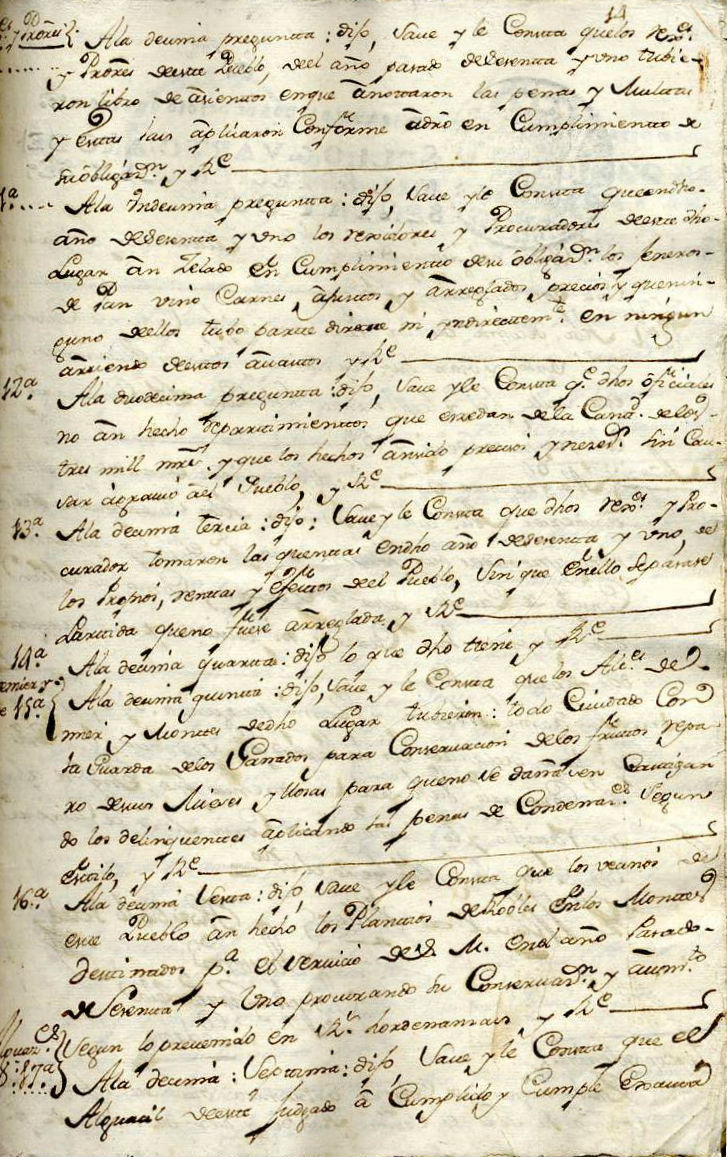 14
Ala decima pregunta: dijo, Save y le Consta quelos
y deeste Pueblo, deel año pasado desesenta y uno tubie-
ron libro de asientos enque anottaron las penas y Multas
y estas las aplicaron Conforme adro en Cumplimiento de
su obligazn. y Re
Ala Undecima pregunta: dijo, Save y le Consta queendho-
año desesenta y uno los rexidores y Procuradores deeste dho-
Lugar an Zelado en Cumplimiento desu obligazn. los Jeneros-
de Pan vino Carnes, y arreglados precios y quenin-
guno dellos tubo parte directe ni yndirectemte. en ningun
arriendo destos avastos y Re
12ª. Ala duodecima pregunta: dijo, Save y le Consta qe. dhos ofiziales
no an hecho repartimientos que exzedan de la Cantd. delos-
tres mill mrs. y que los hechos an sido precisos y nezes. sin Cau-
sar agravio ael Pueblo, y Re
13ª. Ala decima tercia: dijo: Save y le Consta que dhos y Pro-
curador tomaron las quentas endho año desesenta y uno, de
los Propios, rentas y efectos deel Pueblo, sin que enello sepasase
Partida queno fuese arreglada y Re
14ª. Ala decima quarta: dijo lo que dho tiene y Re
15ª Ala decima quinta: dijo, Save y le Consta que los Alces. de
mier y Montes dedho Lugar tubieron: todo Cuidado Con
la Guarda delos Ganados para Conservacion delos fructos repa
ro desus Mieses y llosas para queno se dañasen Castigan
do los delinquentes aplicando las penas de Condenazs. Segun
Estilo, y Re
16ª. Ala decima Sesta: dijo, Save y le Consta que los vecinos de
este Pueblo an hecho los Plantios de Robles Enlos Montes
destinados pa. el servicio de S. M. en el año Pasado-
de Sesenta y Uno procurando su Conservazn. y aumto.
Segun lo prevenido en Rs. hordenanzas y Re
17ª Ala decima: Septima: dijo, Save y le Consta que el
Alguacil deeste Juzgado a Cumplido y Cumple